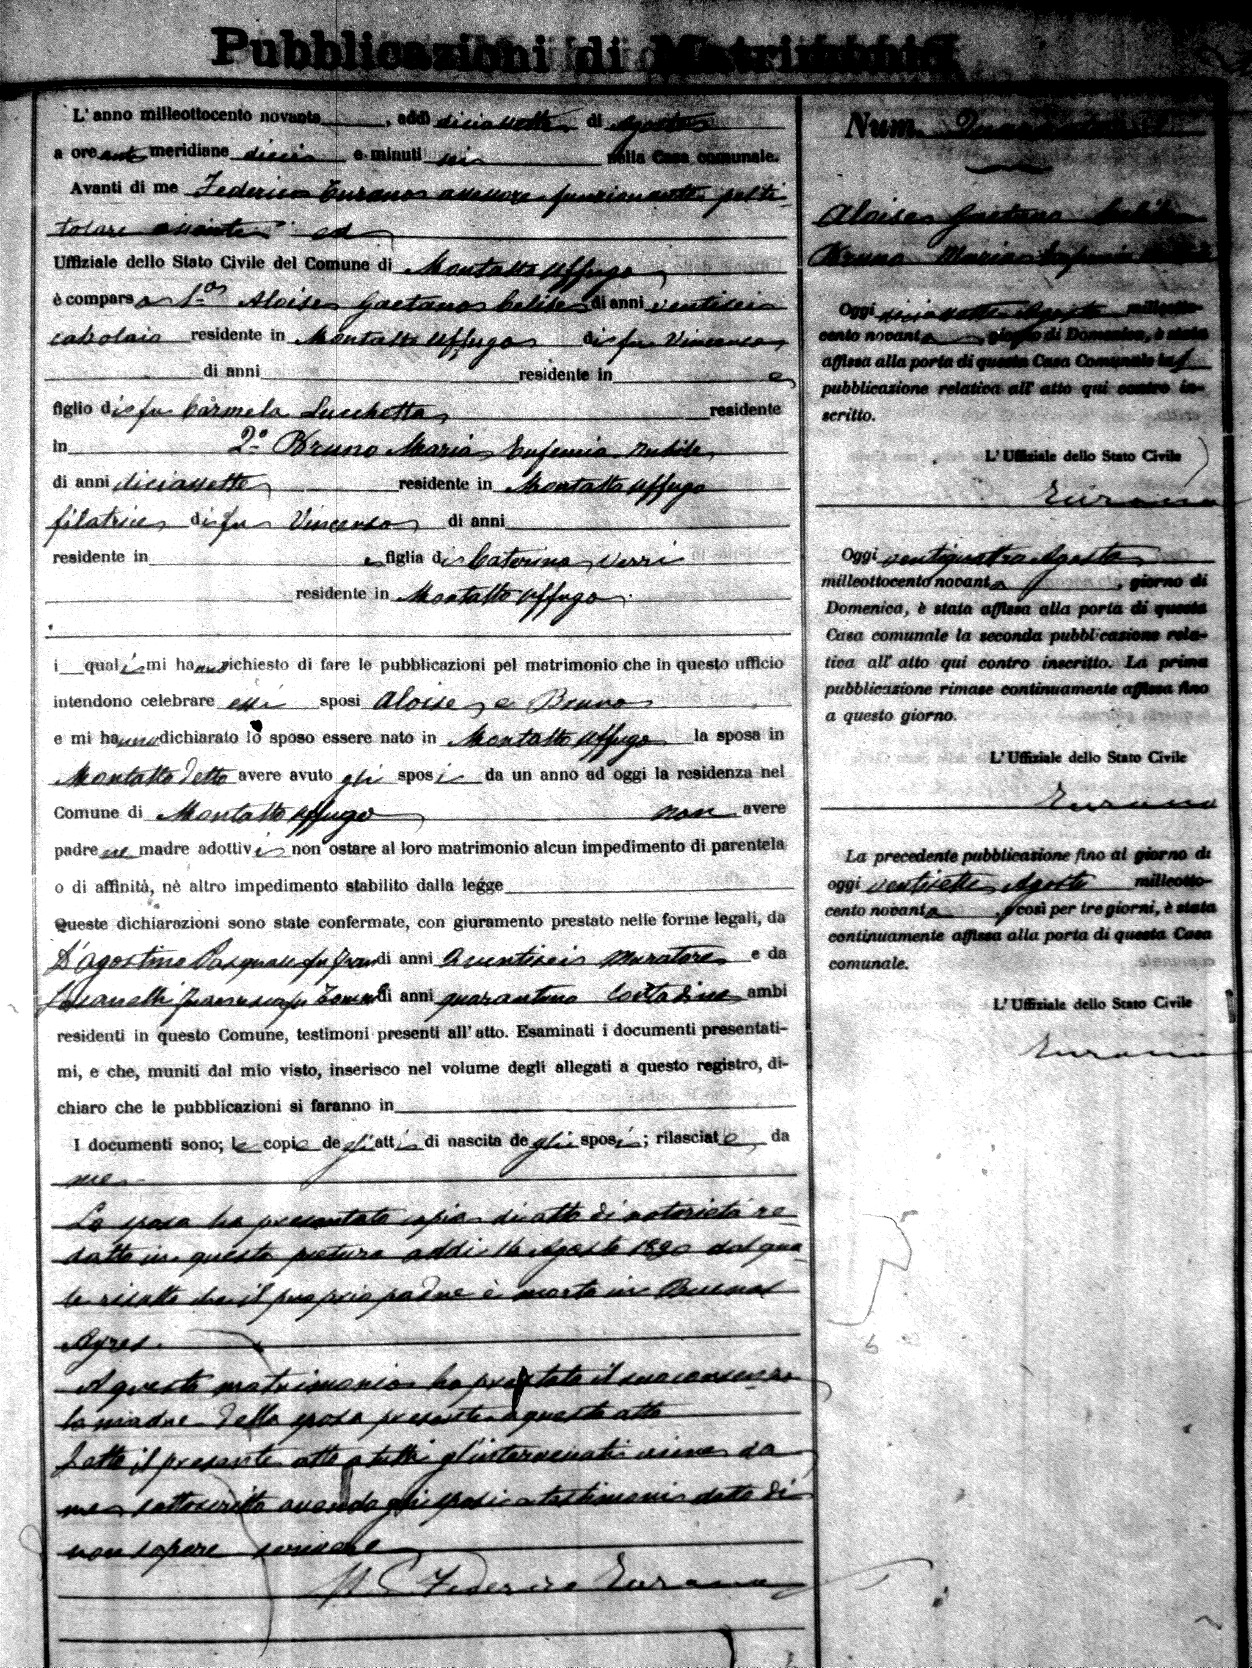 Pubblicazioni di Matrimonio
L'anno milleottocento novanta, addì diciassette di Agosto
a ore ante meridiane dieci e minuti sei nella Casa comunale.
Avanti di me Federico Turano assessore funzionante pel ti-
tolare assente ed
Uffiziale dello Stato Civile del Comune di Montalto Uffugo
è comparso 1º Aloise Gaetano celibe di anni ventisei
calzolaio residente in Montalto Uffugo di fu Vincenzo
di anni residente in e
figlio di fu Carmela Lucchetta residente
in 2º Bruno Maria Eufemia nubile
di anni diciassette residente in Montalto Uffugo
filatrice di fu Vincenzo di anni
residente in e figlia di Caterina Verri
residente in Montalto Uffugo
i quali mi hanno richiesto di fare le pubblicazioni pel matrimonio che in questo ufficio
intendono celebrare essi sposi Aloise e Bruno
e mi hanno dichiarato lo sposo essere nato in Montalto Uffugo la sposa in
Montalto detto avere avuto gli sposi da un anno ad oggi la residenza nel
Comune di Montalto Uffugo non avere
padre ne madre adottivi non ostare al loro matrimonio alcun impedimento di parentela
o di affinità, nè altro impedimento stabilito dalla legge
Queste dichiarazioni sono state confermate, con giuramento prestato nelle forme legali, da
D'Agostino Pasquale fu di anni ventisei Muratore e da
Francesco fu di anni quarantuno Contadino ambi
residenti in questo Comune, testimoni presenti all'atto. Esaminati i documenti presentati-
mi, e che, muniti dal mio visto, inserisco nel volume degli allegati a questo registro, di-
chiaro che le pubblicazioni si faranno in
I documenti sono; le copie degli atti di nascita degli sposi; rilasciate da
me
La sposa ha presentato copia di atto di notorietà re-
datto in questa pretura addì 16 Agosto 1890 dal qua-
le risulta che il proprio padre è morto in Buenos
Ayres.
A questo matrimonio ha prestato il suo consenso
la madre della sposa presente a questo atto
Letto il presente atto a tutti gl'intervenuti viene da
me sottoscritto avendo gli sposi e testimoni detto di
non sapere scrivere
Federico Turano
Num.
Aloise Gaetano celibe
Bruno Maria Eufemia nubile
Oggi diciassette Agosto milleotto-
cento novanta giorno di Domenica, è stata
affissa alla porta di questa Casa Comunale la 1
pubblicazione relativa all'atto qui contro in-
scritto.
L'Uffiziale dello Stato Civile
Turano
Oggi ventiquattro Agosto
milleottocento novanta, giorno di
Domenica, è stata affissa alla porta di questa
Casa comunale la seconda pubblicazione rela-
tiva all'atto qui contro inscritto. La prima
pubblicazione rimase continuamente affissa fino
a questo giorno.
L'Uffiziale dello Stato Civile
Turano
La precedente pubblicazione fino al giorno di
oggi ventisette Agosto milleotto-
cento novanta, e così per tre giorni, è stata
continuamente affissa alla porta di questa Casa
comunale.
L'Uffiziale dello Stato Civile
Turano